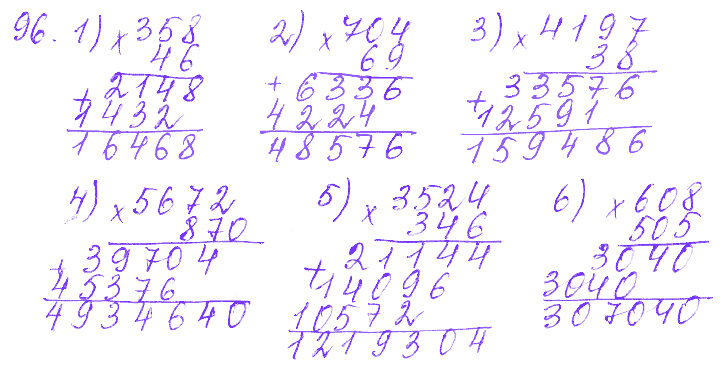 96. 1) × 358 2) × 704 3) × 4197
46 69 38
+ 2148 + 6336 + 33576
1432 4224 12591
16468 48576 159486
4) × 5672 5) × 3524 6) × 608
870 346 505
+ 39704 + 21144 3040
45376 14096 3040
4934640 10572 307040
1219304